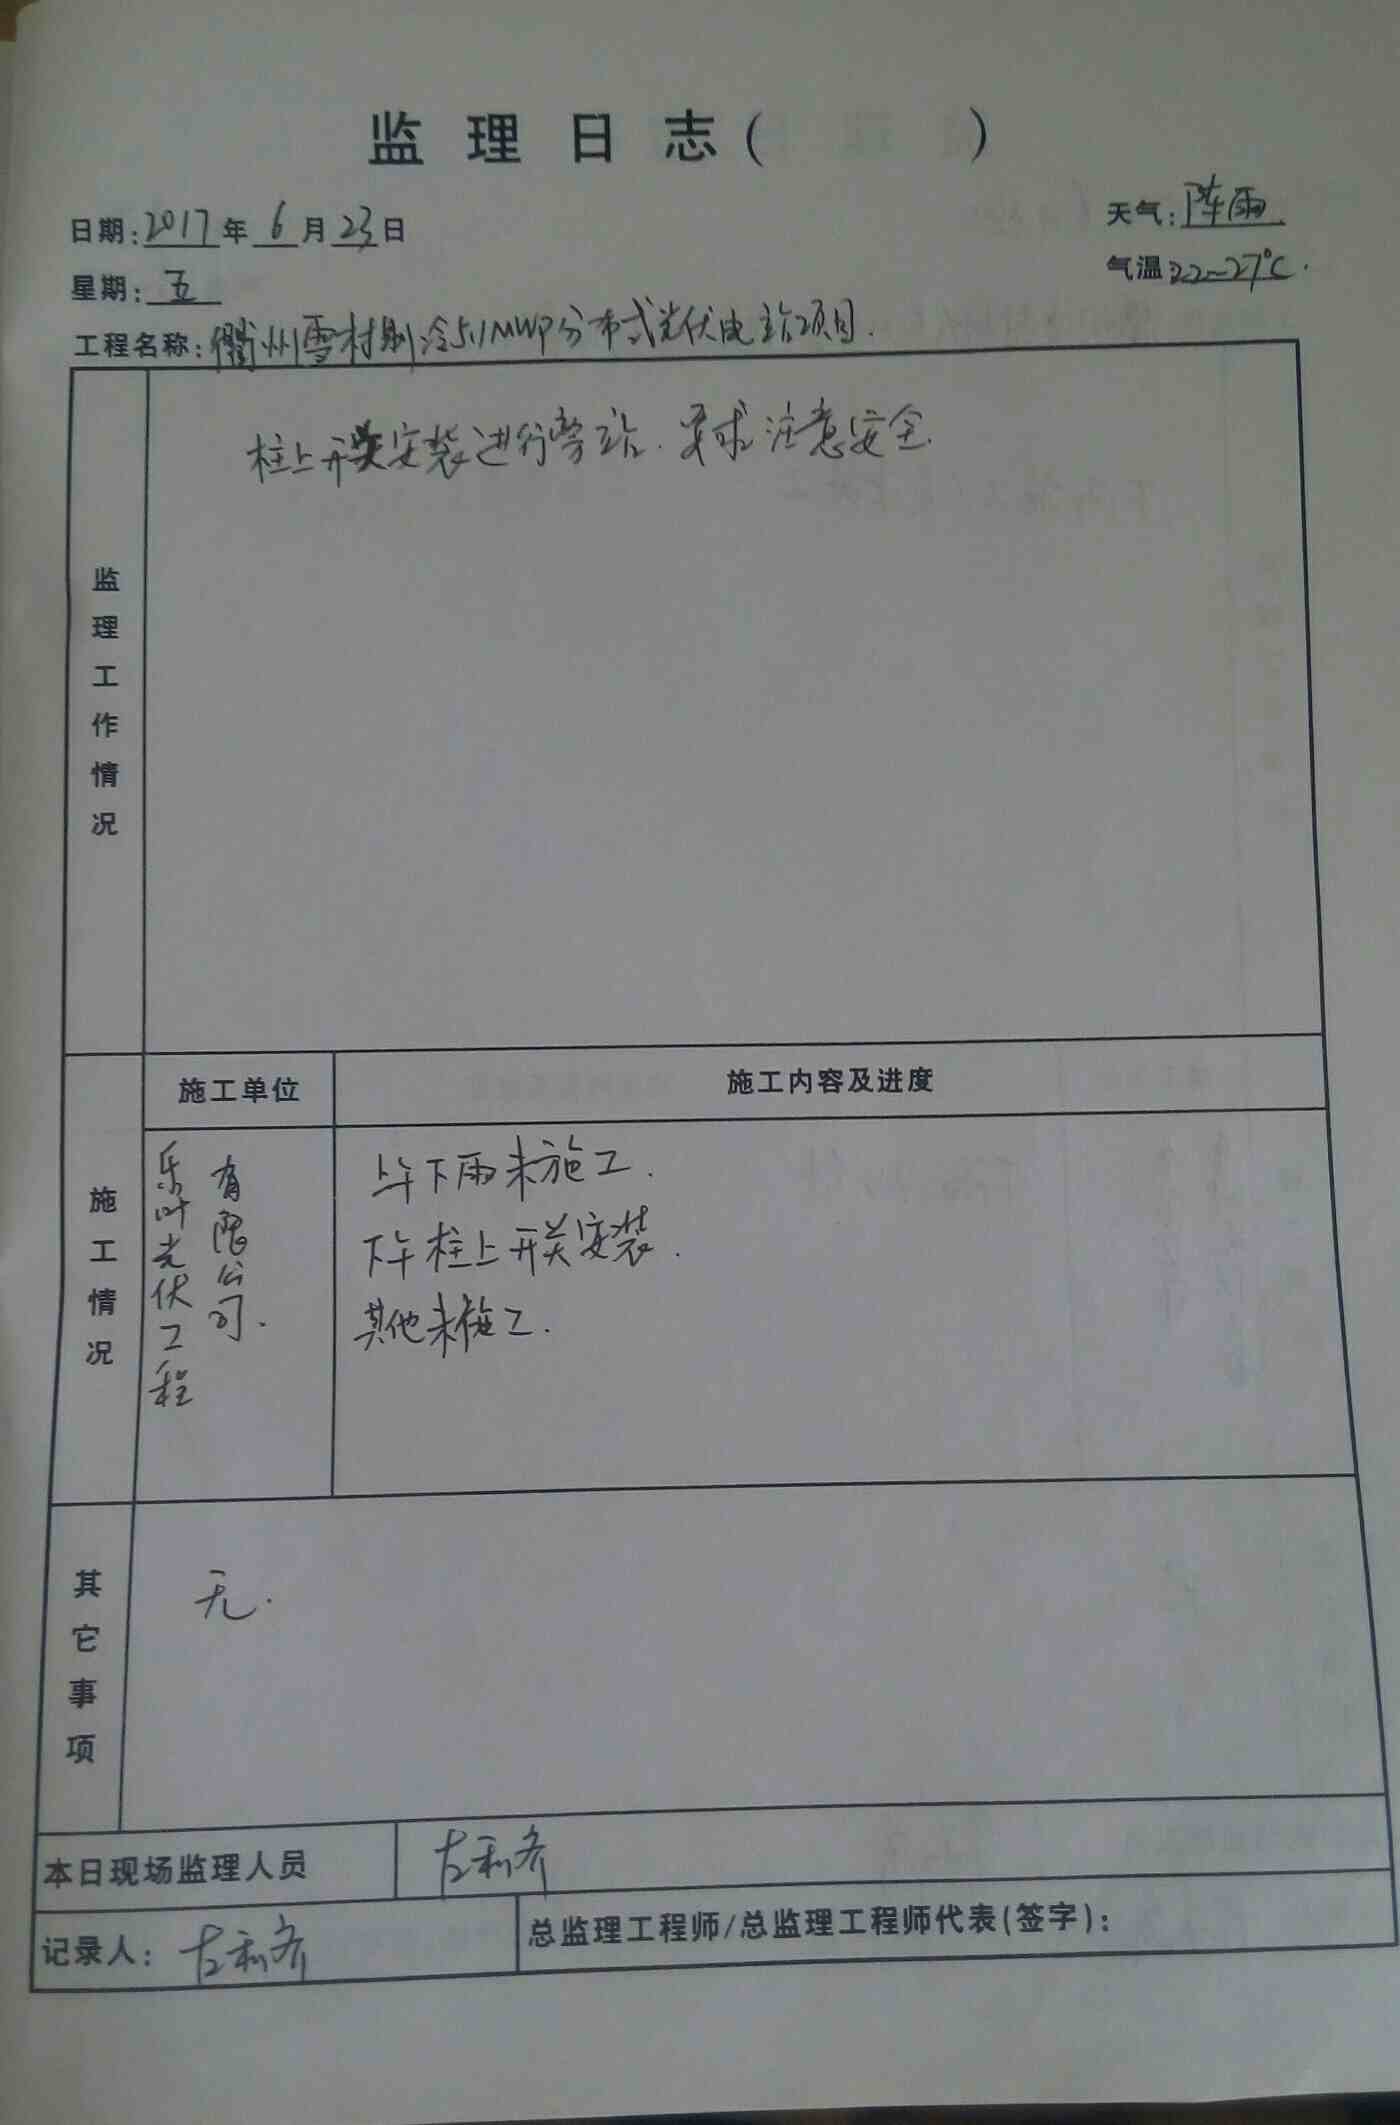 监理日志( )
日期:2017年6月23日
天气:阵雨
星期:五
气温22~27℃.
工程名称:衢州雪村制冷5.1MWP分布式光伏电站项目.
监理工作情况
柱上开关安装进行旁站.要求注意安全.
施工情况
施工单位
施工内容及进度
乐叶光伏工程
有限公司.
上午下雨未施工.
下午柱上开关安装.
其他未施工.
其它事项
无.
本日现场监理人员
左利齐
记录人: 左利齐
总监理工程师/总监理工程师代表(签字):